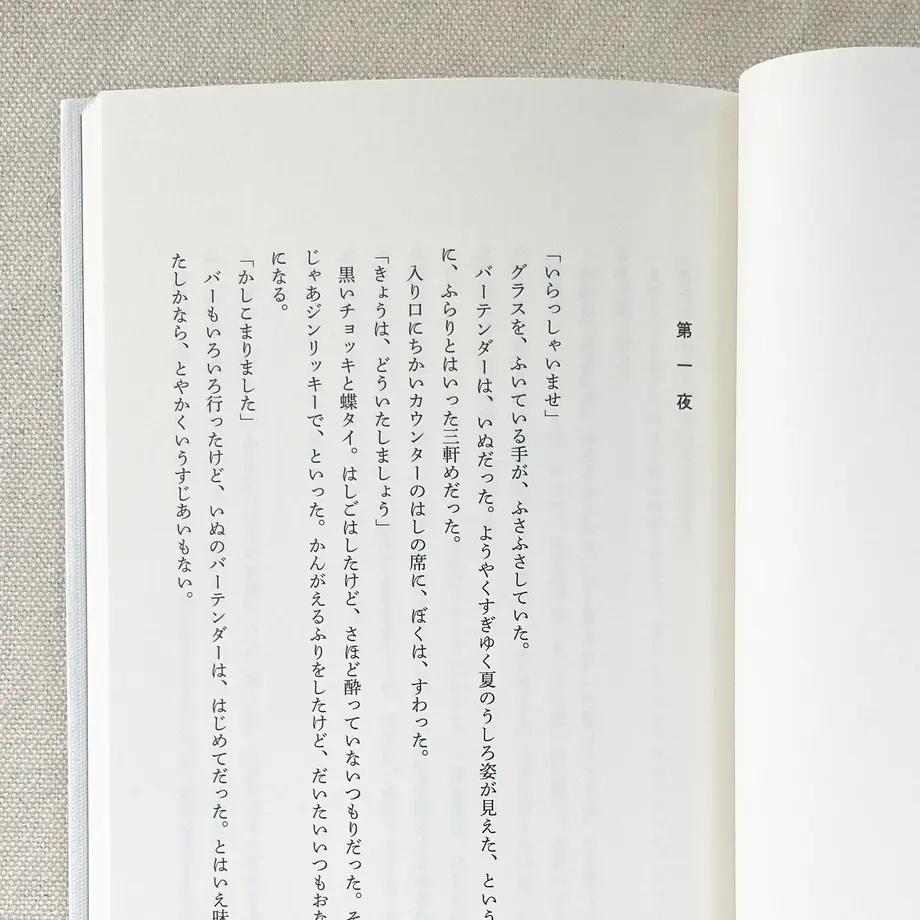 第一夜
「いらっしゃいませ」
グラスを、ふいている手が、ふさふさしていた。
バーテンダーは、いぬだった。ようやくすぎゆく夏のうしろ姿が見えた、という
に、ふらりとはいった三軒めだった。
入り口にちかいカウンターのはしの席に、ぼくは、すわった。
「きょうは、どういたしましょう」
黒いチョッキと蝶タイ。はしごはしたけど、さほど酔っていないつもりだった。そ
じゃあジンリッキーで、といった。かんがえるふりをしたけど、だいたいいつもおな
になる。
「かしこまりました」
バーもいろいろ行ったけど、いぬのバーテンダーは、はじめてだった。とはいえ味
たしかなら、とやかくいうすじあいもない。